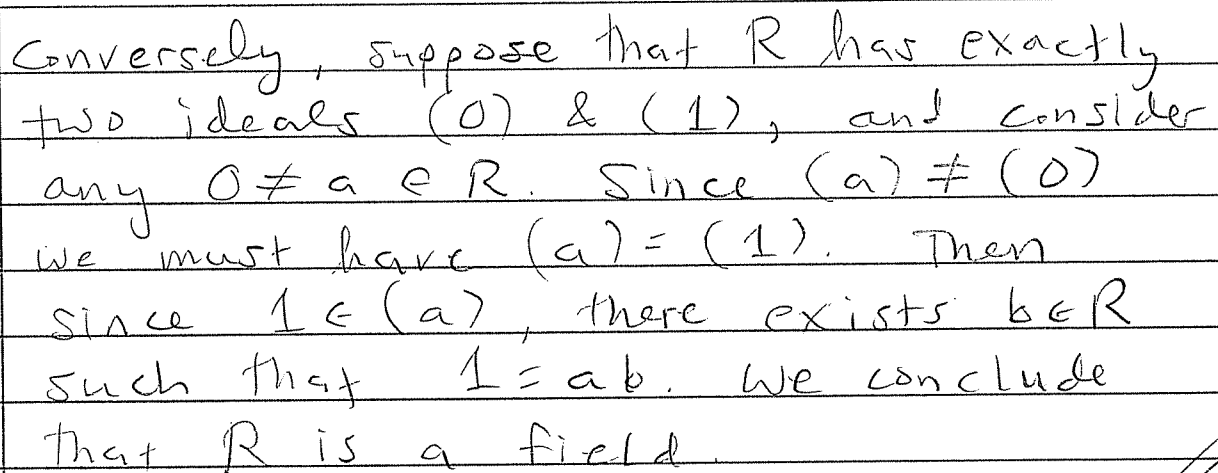 Conversely, suppose that R has exactly
two ideals (0) & (1), and consider
any 0 ≠ a ∈ R. Since (a) ≠ (0)
we must have (a) = (1). Then
since 1 ∈ (a), there exists b ∈ R
such that 1 = ab. We conclude
that R is a field.